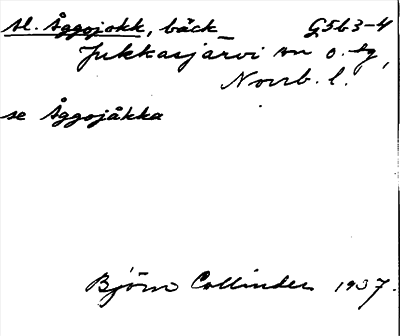 Al. Åggojokk, bäck G5b3-4
Jukkasjärvi sn o. lg,
Norrb. l.
se Åggojåkka
Björn Collinder 1937.